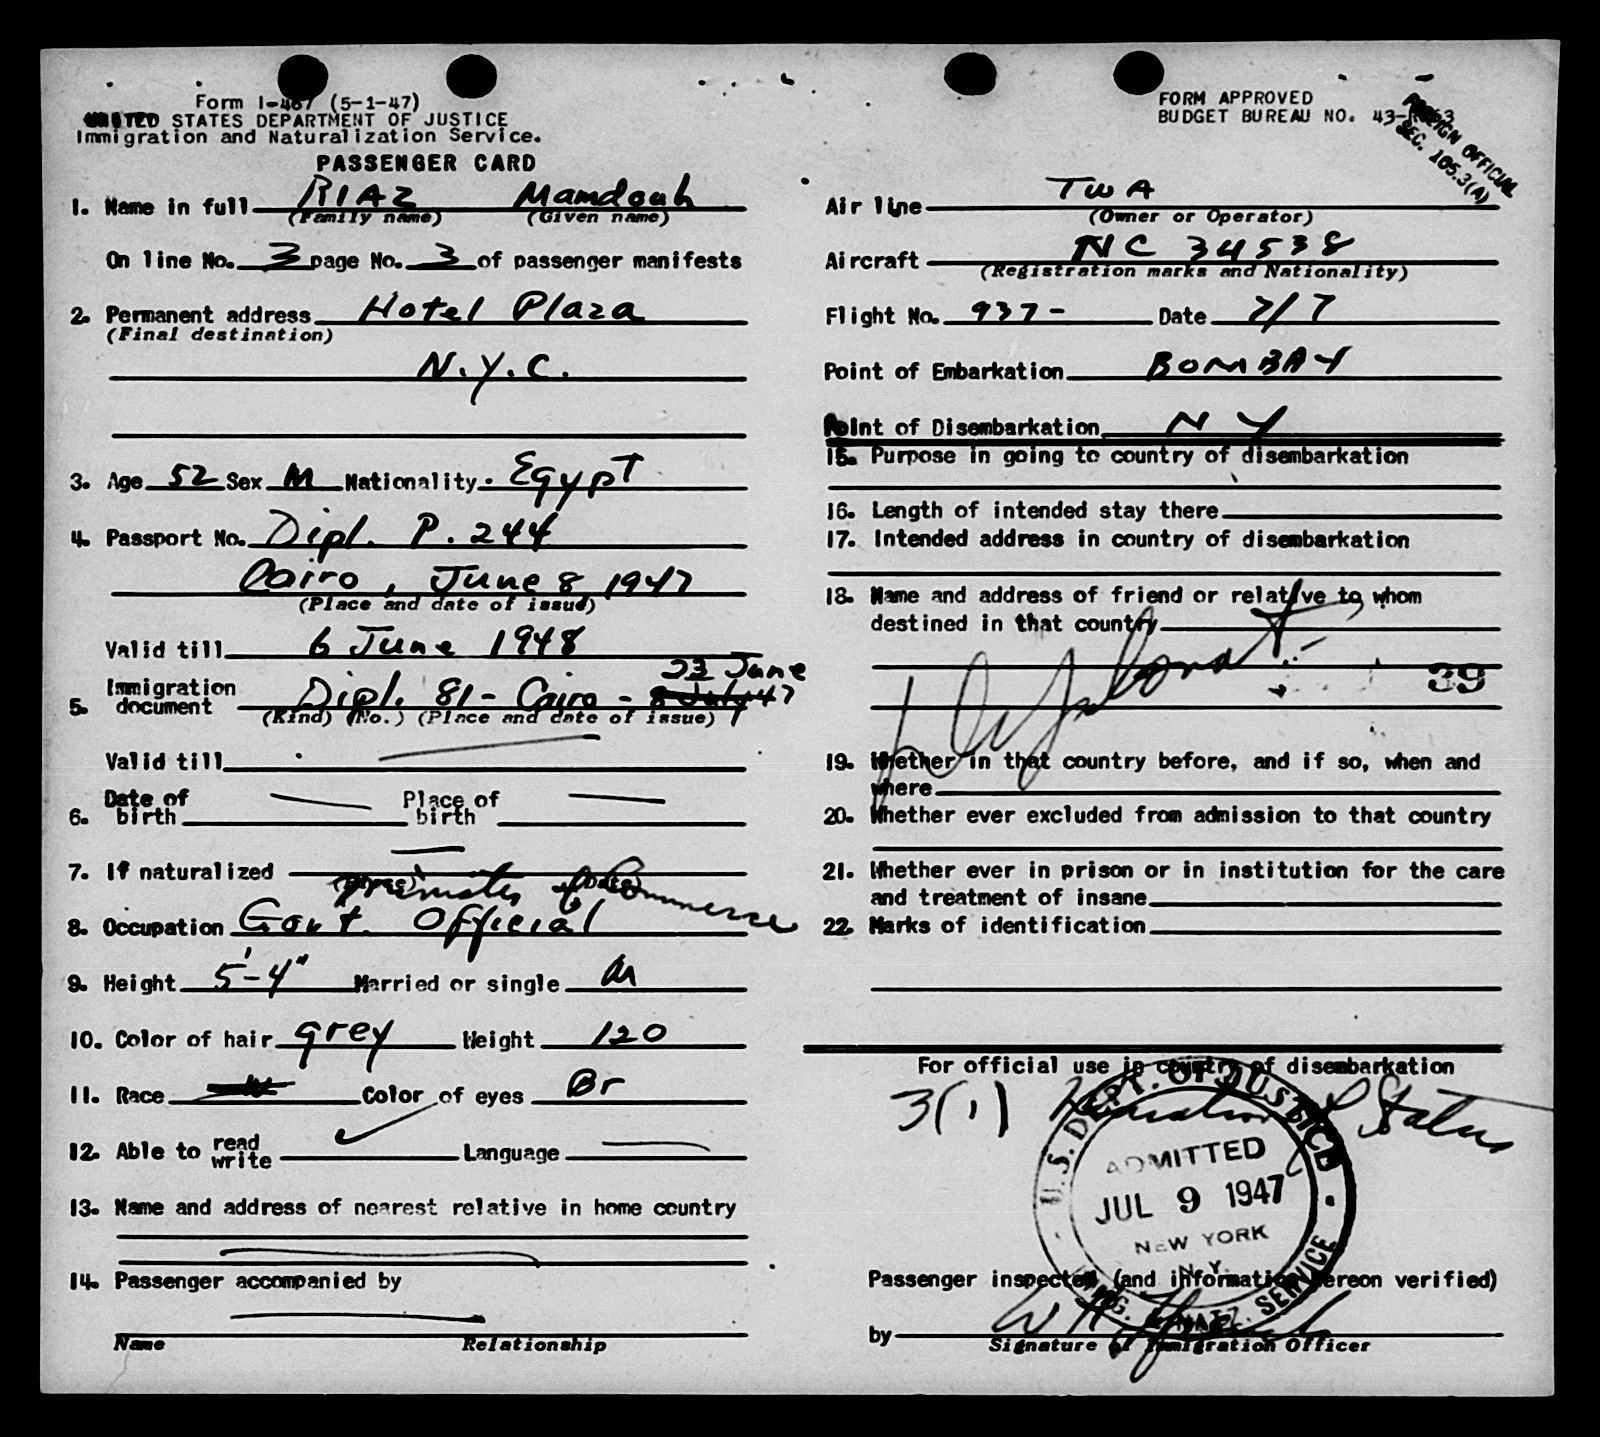 Form I-467 (5-1-47)
UNITED STATES DEPARTMENT OF JUSTICE
Immigration and Naturalization Service.
PASSENGER CARD
1. Name in full RIAZ Mamdouh
(Family name) (Given name)
On line No. 3 page No. 3 of passenger manifests
2. Permanent address Hotel Plaza
(Final destination)
N.Y.C.
3. Age 52 Sex M Nationality Egypt
4. Passport No. Dipl. P. 244
Cairo, June 8 1947
(Place and date of issue)
Valid till 6 June 1948
23 June
5. Immigration document Dipl. 81 - Cairo - 8 July 47
(Kind) (No.) (Place and date of issue)
Valid till
6. Date of birth Place of birth
7. If naturalized
(Place) (Date)
of Commerce
8. Occupation Govt. Official
9. Height 5'-4" Married or single M
10. Color of hair grey Weight 120
11. Race W Color of eyes Br
12. Able to read write Language
13. Name and address of nearest relative in home country
14. Passenger accompanied by
Name Relationship
FORM APPROVED
BUDGET BUREAU NO. 43-
FOREIGN OFFICIAL
SEC. 105.3(A)
Air line TWA
(Owner or Operator)
Aircraft NC 34538
(Registration marks and Nationality)
Flight No. 937- Date 7/7
Point of Embarkation BOMBAY
Point of Disembarkation NY
15. Purpose in going to country of disembarkation
16. Length of intended stay there
17. Intended address in country of disembarkation
18. Name and address of friend or relative to whom
destined in that country
Diplomat
39
19. Whether in that country before, and if so, when and
where
20. Whether ever excluded from admission to that country
21. Whether ever in prison or in institution for the care
and treatment of insane
22. Marks of identification
For official use in country of disembarkation
3(1) Duration of Status
U.S. DEPT. OF JUSTICE
ADMITTED
JUL 9 1947
NEW YORK
N.Y.
IMMIG. & NATZ. SERVICE
Passenger inspected (and information hereon verified)
by W H
Signature of Immigration Officer